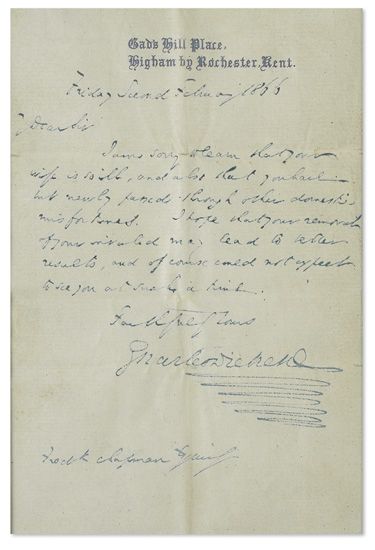 Gad's Hill Place,
Higham by Rochester, Kent.
Friday Second February 1866
My Dear Sir
I am sorry to learn that your
wife is so ill, and also that you have
but newly passed through other domestic
misfortunes. I hope that your removal
of your invalid may lead to better
results, and of course could not expect
to see you at such a time.
Faithfully Yours
Charles Dickens
Chapman Esquire